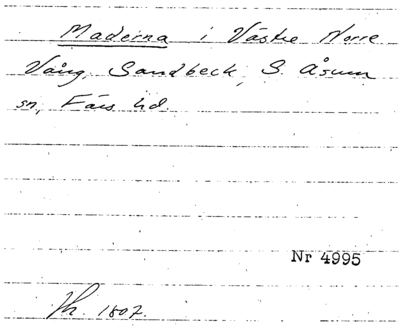 Maderna i Västre Norre
Vång, Sandbeck, S. Åsum
sn, Färs hd.
Nr 4995
Th. 1807.